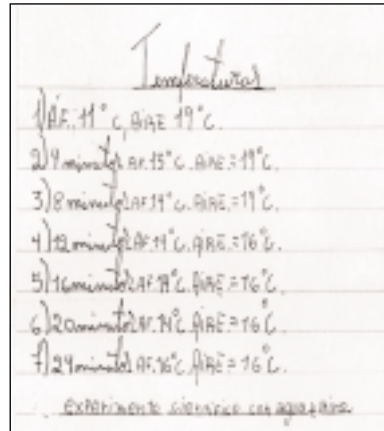 Temperaturas
1) A.F. 11°C, AIRE 19°C.
2) 4 minutos A.F. 15°C. AIRE = 19°C.
3) 8 minutos A.F. 14°C. AIRE = 19°C.
4) 12 minutos A.F. 14°C. AIRE = 16°C.
5) 16 minutos A.F. 14°C. AIRE = 16°C.
6) 20 minutos A.F. 14°C. AIRE = 16°C.
7) 24 minutos A.F. 16°C. AIRE = 16°C.
experimento cientifico con agua y aire